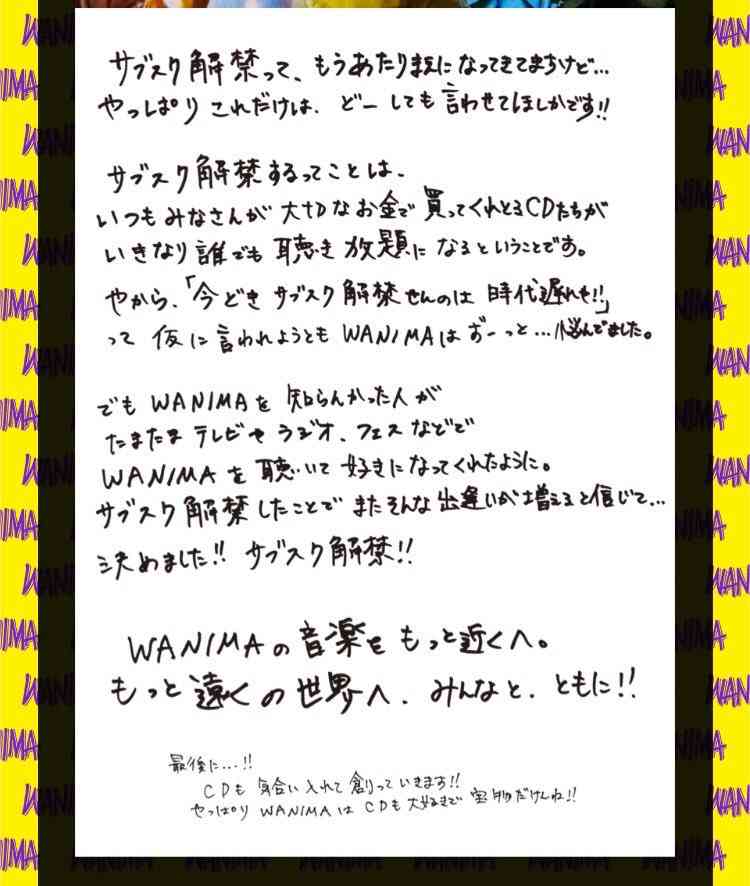 サブスク解禁って、もうあたりまえになってきてますけど…
やっぱり これだけは、どーしても言わせてほしかです!!
サブスク解禁するってことは、
いつもみなさんが 大切なお金で買ってくれとるCDたちが
いきなり誰でも聴き放題になるということです。
やから、「今どき サブスク解禁せんのは 時代遅れや!!」
って 仮に言われようとも WANIMAは ずーっと…悩んでました。
でも WANIMAを 知らんかった人が
たまたま テレビや ラジオ、フェスなどで
WANIMAを 聴いて 好きになってくれたように。
サブスク解禁したことで またそんな出逢いが増えると信じて…
決めました!! サブスク解禁!!
WANIMAの 音楽を もっと近くへ。
もっと 遠くの世界へ、みんなと、ともに!!
最後に…!!
CDも 気合い入れて 創っていきます!!
やっぱり WANIMAは CDも大好きで 宝物だけんね!!
WANIMA